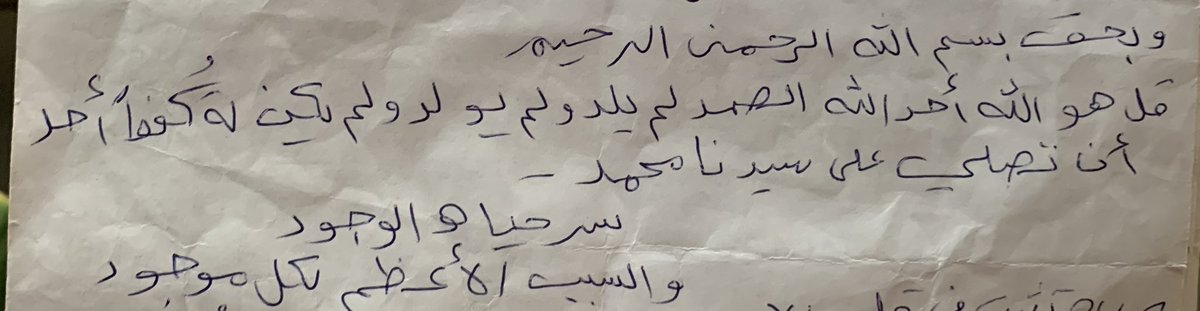 وبحق بسم الله الرحمن الرحيم
قل هو الله أحد الله الصمد لم يلد ولم يولد ولم يكن له كُفواً أحد
أن تصلي على سيدنا محمد -
سر حياة الوجود
والسبب الأعظم لكل موجود